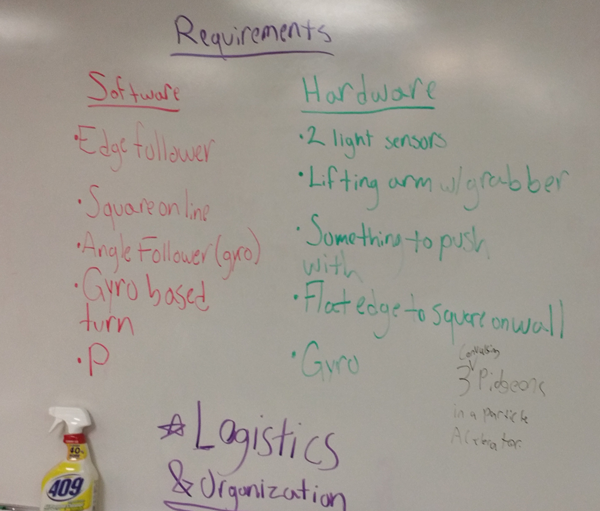 Requirements
Software
•Edge follower
•Square on line
•Angle Follower (gyro)
•Gyro based
turn
•P
Hardware
•2 light sensors
•Lifting arm w/grabber
•Something to push
with
•Flat edge to square on wall
•Gyro
3 Pidgeons
in a particle
☆Logistics
& Organization
40%
409